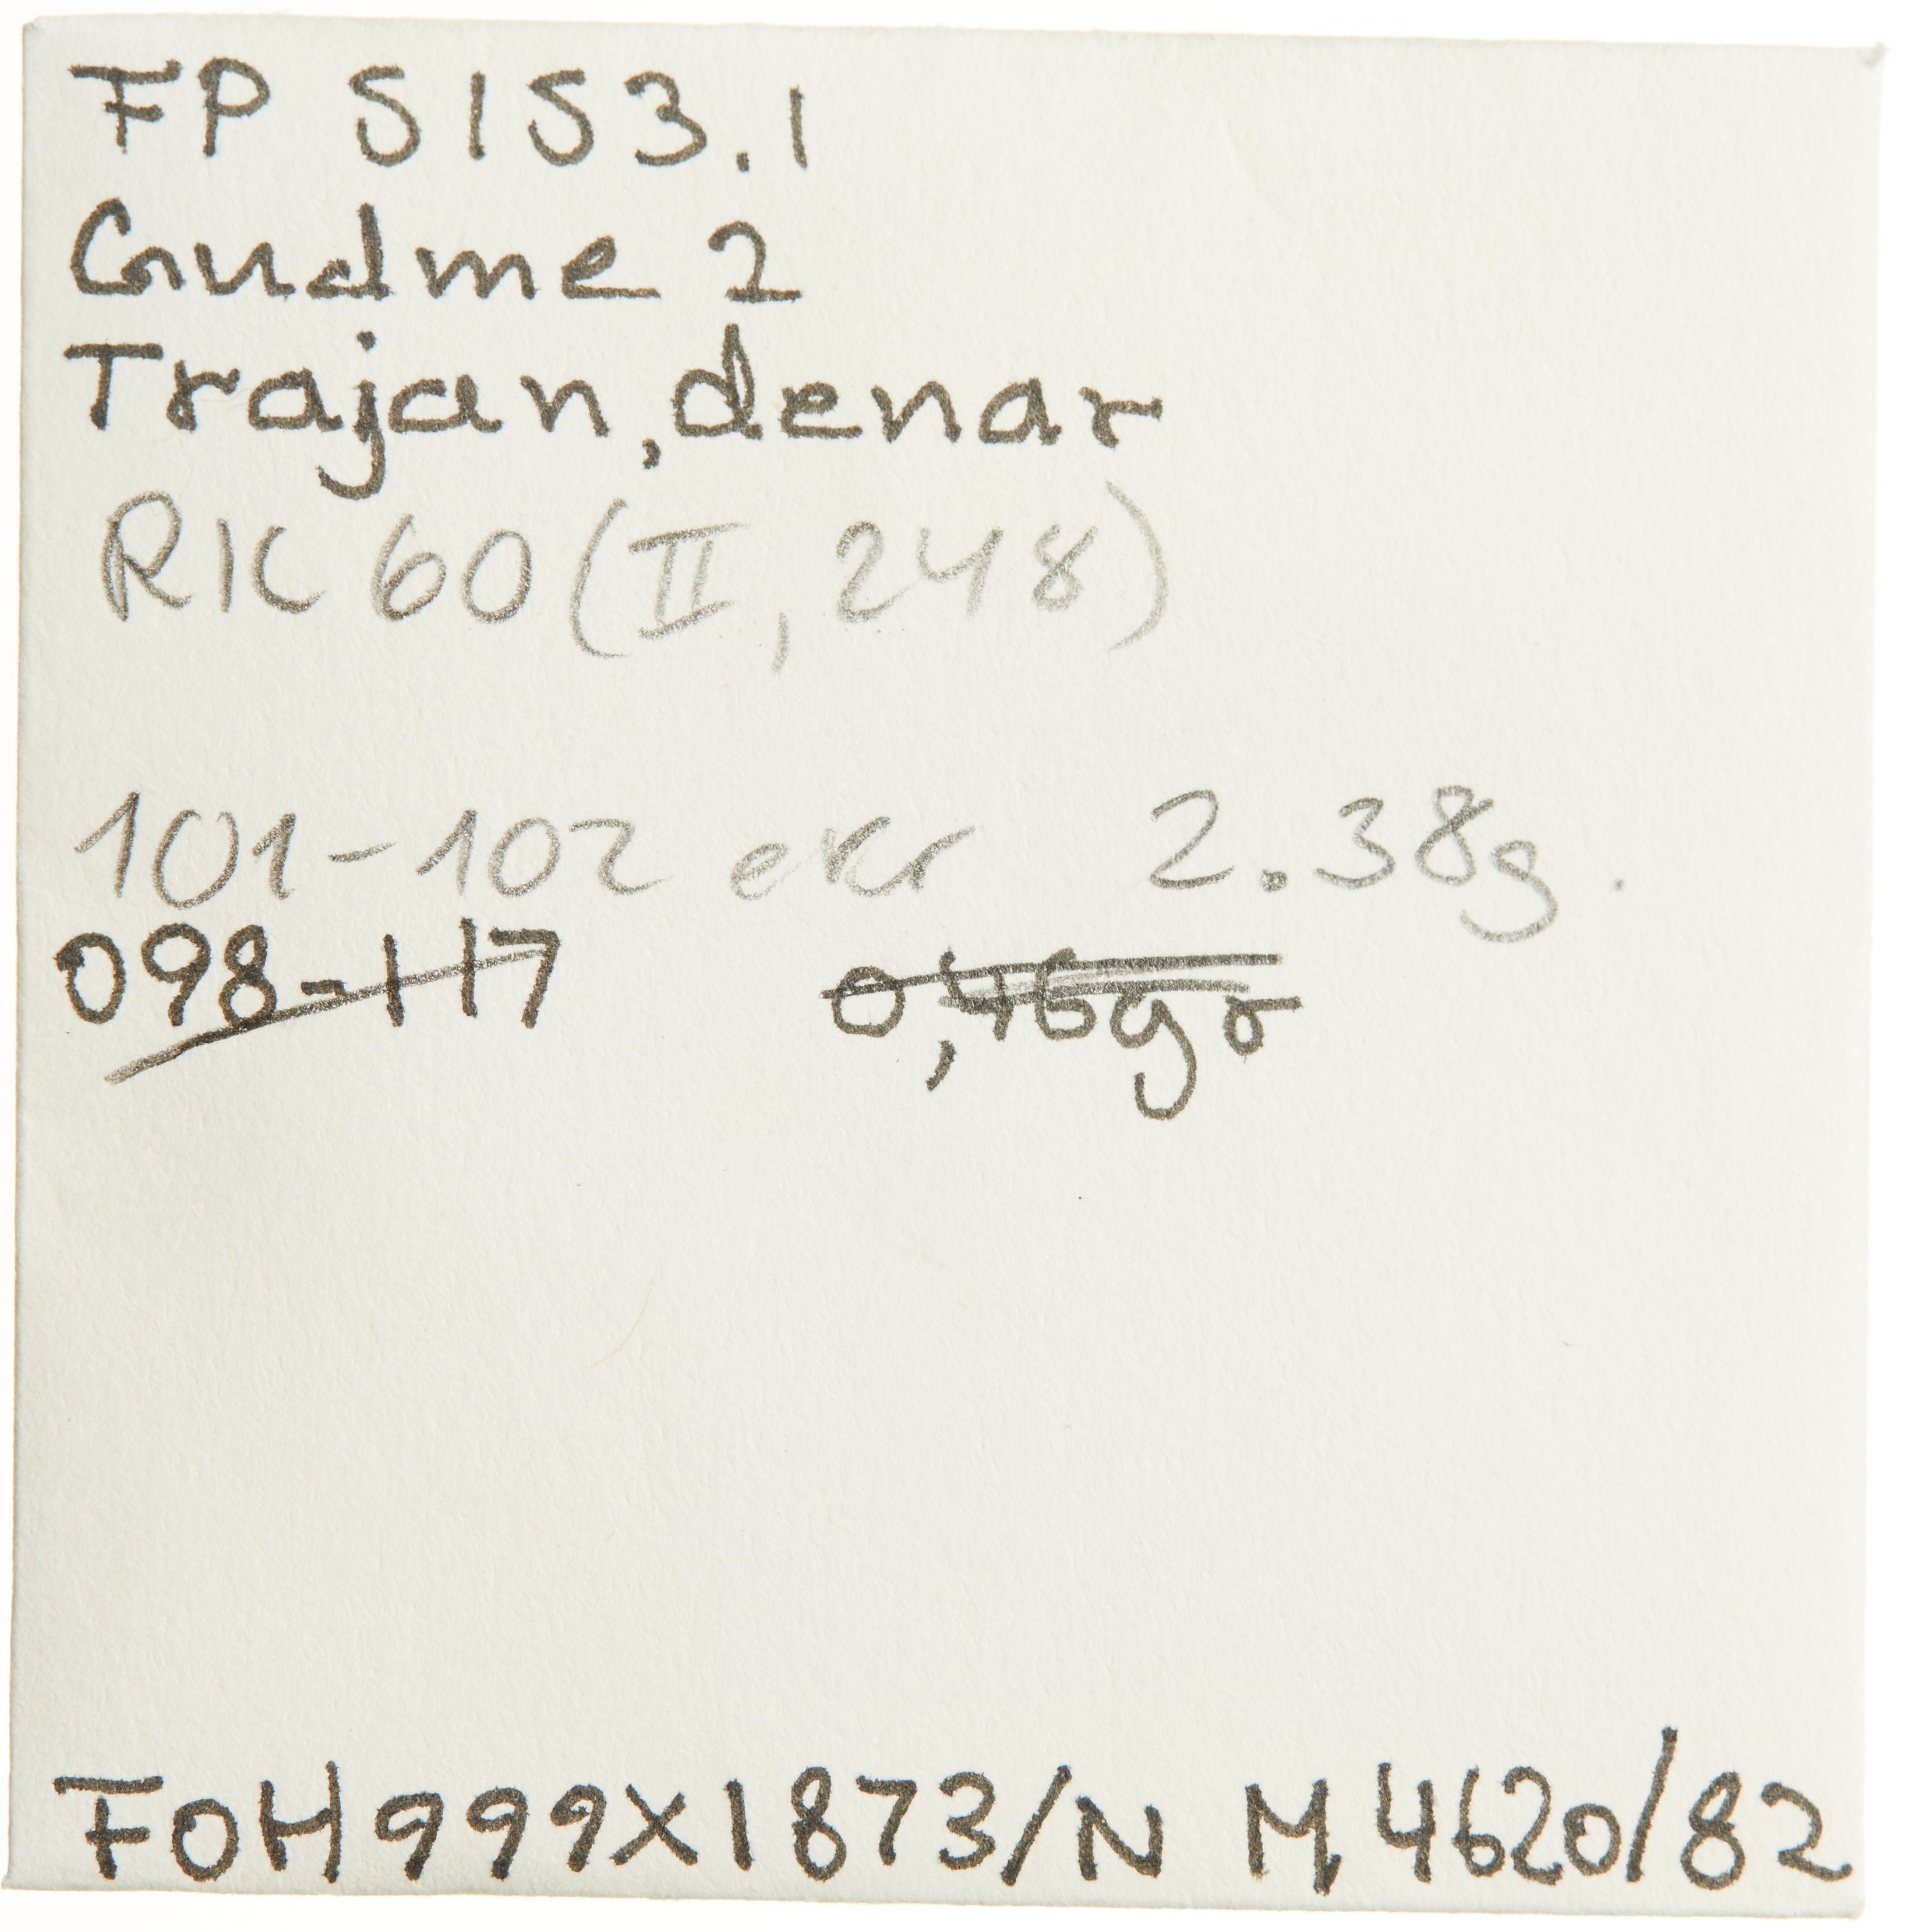 FP 5153.1
Gudme 2
Trajan, denar
RIC 60 (II, 248)
101-102 ekr 2.38g.
098-117 0,46gr
FOH999X1873/N M,4620/82